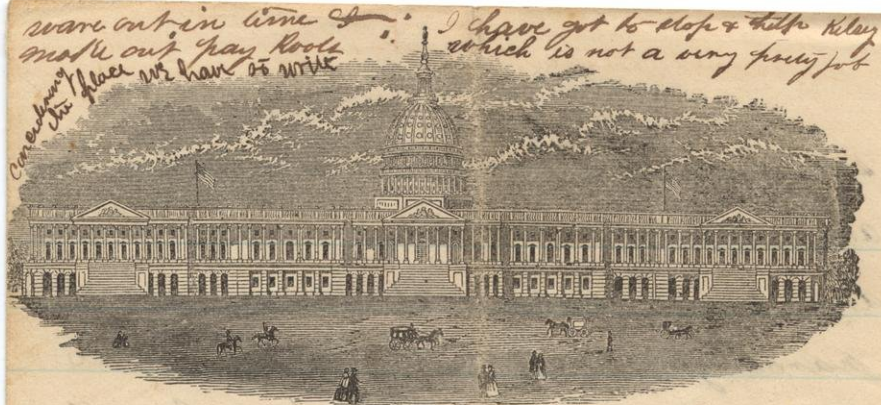 ware out in time &
I have got to stop & help Kiley
made out pay Rools
which is not a very prity job
the place we have to write